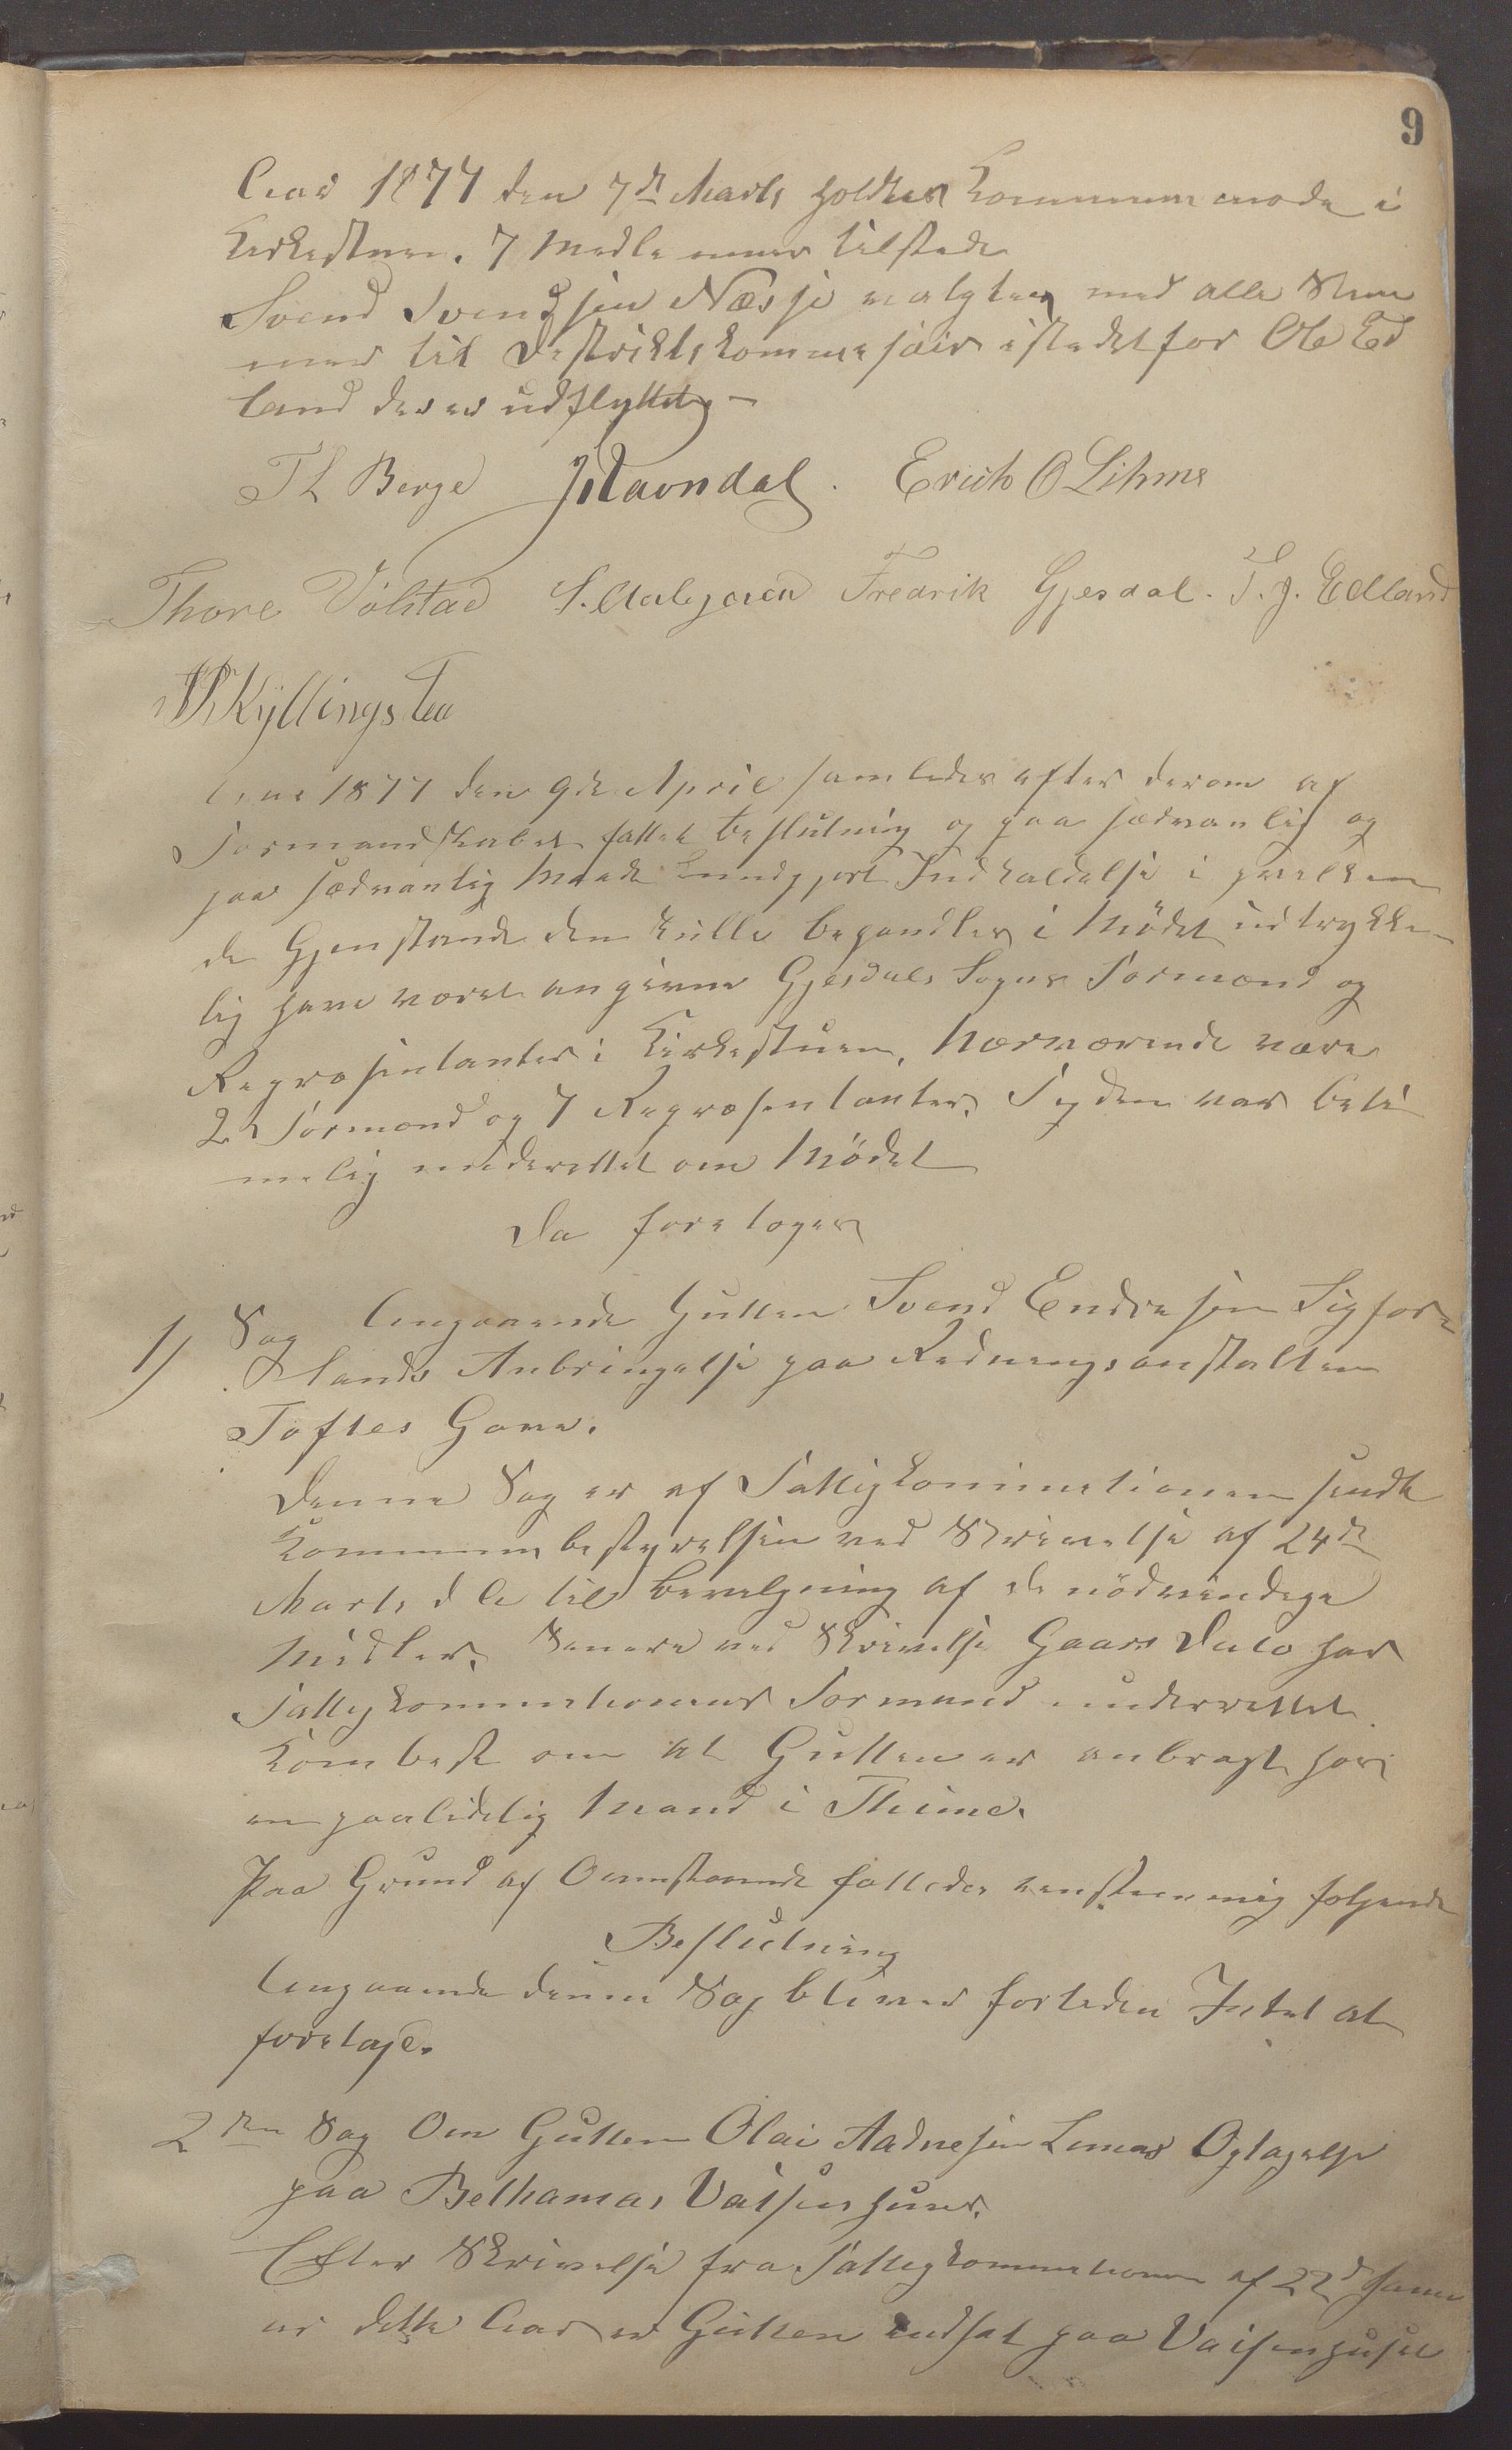 9
Aar 1877 den 7de Marts holdtes Kommunemøde i
Kirkestuen. 7 Medlemmer tilstede
Svend Svendsen Næsse valgtes med alle Stem
mer til Distriktskommissær istedetfor Ole Ed
land der er udflyttet –
Th Berge J Stavndal. Erich O Lihme
Thore Vølstad S. Aalgaard Fredrik Gjesdal. T. J. Edland
Kyllingstad
Aar 1877 den 9de April samledes efter derom af
Formandskabet fattet Beslutning og paa sædvanlig og
paa sædvanlig Maade kundgjort Indkaldelse i hvilken
de Gjenstande den skulle behandles i Mødet udtrykke-
lig have været angivne Gjesdals Sogns Formænd og
Repræsentanter i Kirkestuen. Nærværende vare
2 Formænd og 7 Repræsentanter. Fogden var beti
melig underrettet om Mødet
Da foretoges
1) Sag Angaaende Gutten Svend Endresen Sigfor-
Hands Anbringelse paa Redningsanstalten
Toftes Gave.
Denne Sag er af Fattigkommissionen sendt
Kommunebestyrelsen ved Skrivelse af 24de
Marts d A til Bevilgning af de nødvendige
Midler. Senere ved Skrivelse Gaars Dato har
Fattigkommissionens Formand underrettet
Kombest om at Gutten er anbragt hos
en paalidelig Mand i Thime.
Paa Grund af Ovenstaaende fattedes eenstemmig følgende
Beslutning
Angaaende denne Sag bliver fortiden Intet at
foretage.
2den Sag Om Gutten Olai Aadnesen Limas Optagelse
paa Bethanias Vaisenhuus.
Efter Skrivelse fra Fattigkommissionen af 22de Janu
ar dette Aar er Gutten indsat paa Vaisenhuset